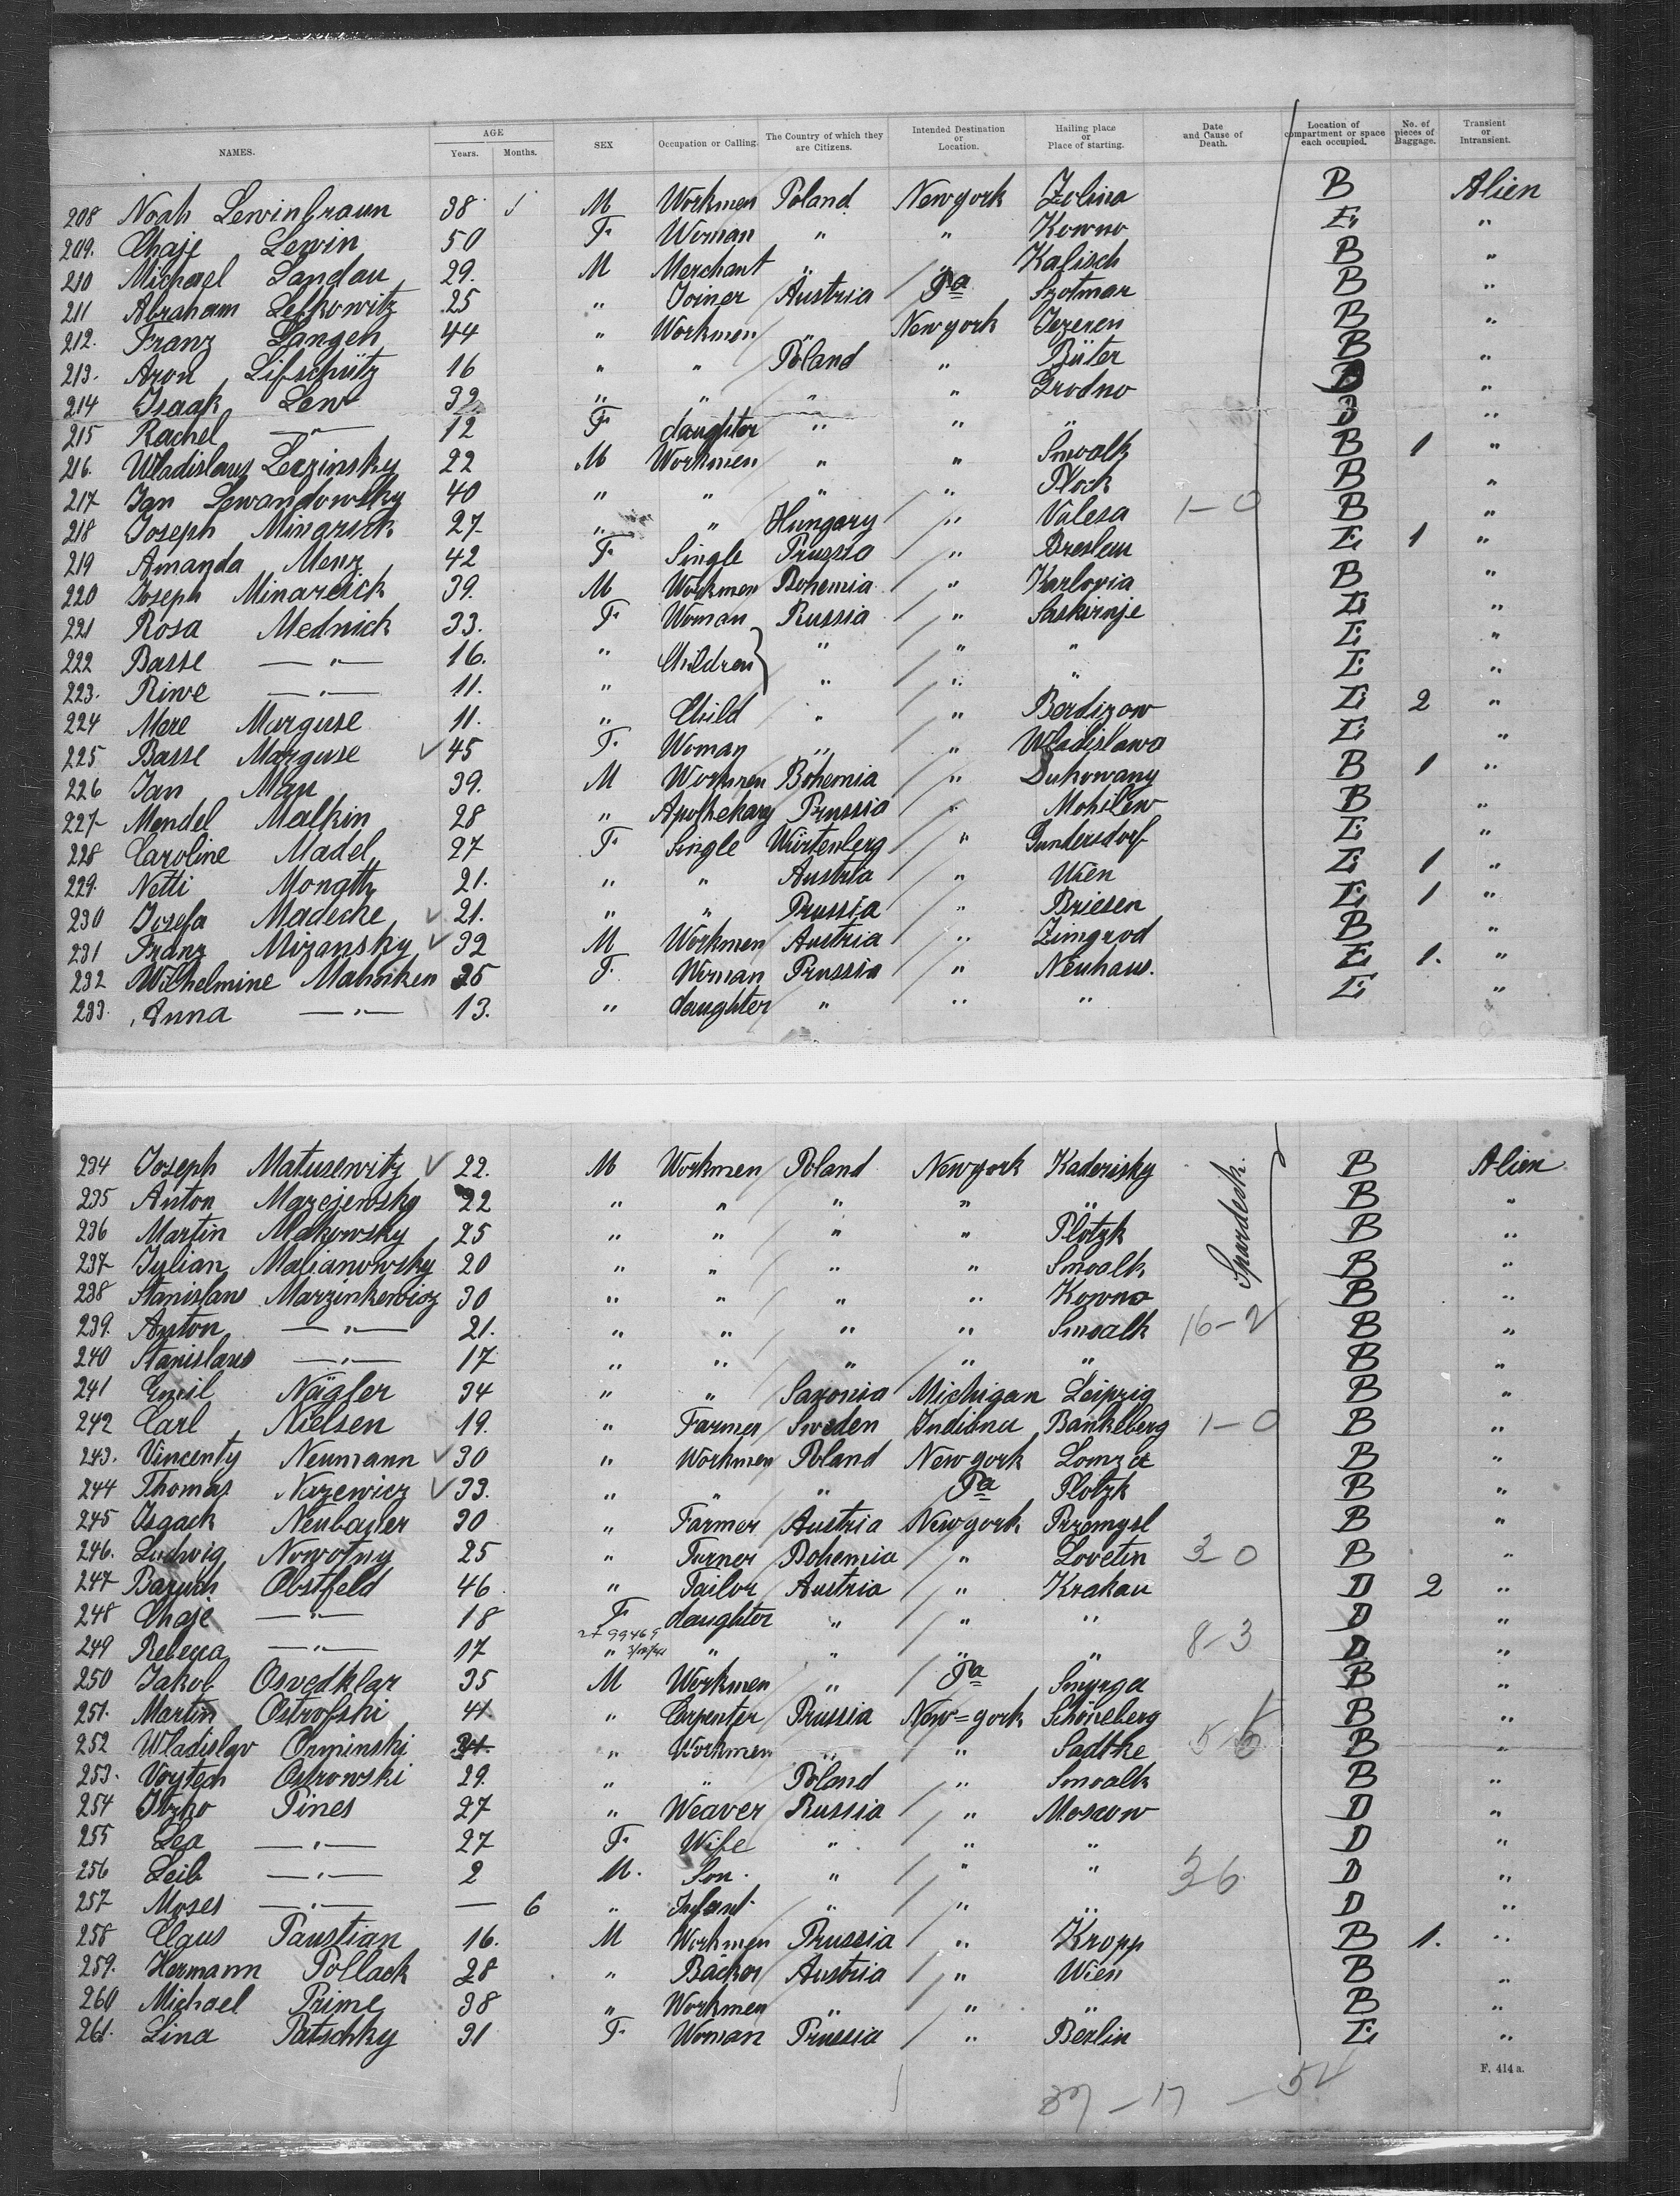 NAMES. AGE Years. Months. SEX Occupation or Calling. The Country of which they are Citizens. Intended Destination or Location. Hailing place or Place of starting. Date and Cause of Death. Location of compartment or space each occupied. No. of pieces of Baggage. Transient or Intransient.
208 Noah Lewinbraun 38 M Workmen Poland Newyork Zolina B Alien
209. Chaje Lewin 50 F. Woman " " Kowno E. "
210 Michael Landau 29. M Merchant " " Kalisch B "
211 Abraham Lefkowitz 25 " Joiner Austria Pa Szotmar B "
212. Franz Langen 44 " Workmen " Newyork Jezeren B "
213. Aron Lifschütz 16 " " Poland " Büter B "
214 Isaak Lew 32 " " " " Grodno B "
215 Rachel —"— 12 F. daughter " " " B "
216. Wladislaus Lezinsky 22 M Workmen " " Smoalk B 1 "
217 Jan Lewandowsky 40 " " " " Plock B "
218 Joseph Minarsck 27 " " Hungary " Valesa 1-0 B "
219 Amanda Menz 42 F. Single Prussia " Breslau E 1 "
220 Joseph Minarcick 39. M Workmen Bohemia " Karlovia B "
221 Rosa Mednick 33. F. Woman Russia " Saskirnje E. "
222 Basse —"— 16. " Children " " " E. "
223. Riwe —"— 11. " " " " E. "
224 Mere Marguse 11. " Child " " Berdizow E. 2 "
225 Basse Marguse 45 F. Woman " " Wladislawo E. "
226 Jan Mau 39. M Workmen Bohemia " Dukowany B 1 "
227 Mendel Malkin 28 " Apothekary Prussia " Mohilew B "
228 Caroline Madel 27 F. Single Würtenberg " Gundersdorf E. "
229. Netti Monath 21. " " Austria " Wien E. 1 "
230 Josefa Madecke 21. " " Prussia " Briesen E. 1 "
231 Franz Mizansky 32 M Workmen Austria " Zimgrod B "
232 Wilhelmine Mahnken 35 F. Woman Prussia " Neuhaus. E 1. "
233. Anna —"— 13. " daughter " " " E. "
234 Joseph Matusewitz 22. M Workmen Poland Newyork Kaderisky Spardeck. B Alien
235 Anton Mazejewsky 22 " " " " " B "
236 Martin Makowsky 25 " " " " Plotzk B "
237 Julian Malianowsky 20 " " " " Smoalk B "
238 Stanislaus Marzinkewicz 30 " " " " Kowno B "
239. Anton —"— 21. " " " " Smoalk 16-2 B "
240 Stanislaus —"— 17 " " " " " B "
241 Emil Nägler 34 " " Saxonia Michigan Leipzig B "
242 Carl Nielsen 19. " Farmer Sweden Indiana Bankeberg 1-0 B "
243. Vincenty Neumann 30 " Workmen Poland Newyork Lomza B "
244 Thomas Nazewicz 33. " " " Pa Plotzk B "
245 Isaack Neubauer 30 " Farmer Austria Newyork Przemysl B "
246. Ludwig Nowotny 25 " Turner Bohemia " Lovetin 3-0 B "
247 Baruch Obstfeld 46 " Tailor Austria " Krakau D 2 "
248 Chaje —"— 18 F daughter " " " D "
249 Rebecca —"— 17 " " " " " 8-3 D "
250 Jakob Osvedklar 35 M Workmen " Pa Smyrga B "
251. Martin Ostrofski 41 " Carpenter Prussia New=york Schöneberg B "
252 Wladislav Orminski 34 " Workmen " " Sadtke 5 6 B "
253. Voytech Ostrowski 29. " " Poland " Smoalk B "
254 Itzko Pines 27 " Weaver Russia " Moscow D "
255 Lea —"— 27 F. Wife " " " D "
256 Leib —"— 2 M. Son. " " " 36 D "
257 Moses —"— — 6 " Infant " " " D "
258 Claus Paustian 16. M Workmen Prussia " Kropp B 1. "
259. Hermann Pollack 28 " Backer Austria " Wien B "
260 Michael Prime 38 " Workmen " " " B "
261. Lina Patschky 31 F. Woman Prussia " Berlin E. "
F. 414 a.
37 - 17 - 54